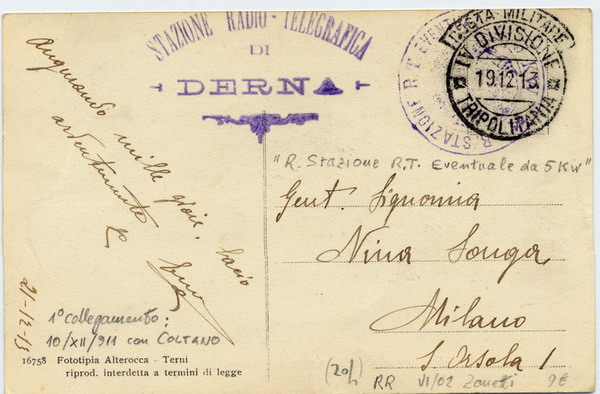 STAZIONE RADIO-TELEGRAFICA
DI
DERNA
POSTA MILITARE
IV DIVISIONE
19.12.13
TRIPOLITANIA
R. STAZIONE R.T. EVENT
Augurando mille gioie,
ardentemente
bacio
"R. Stazione R.T. Eventuale da 5 KW"
Gent. Signorina
Nina Songa
Milano
S. Orsola 1
21-12-13
1° collegamento:
10/XII/911 con COLTANO
16753 Fototipia Alterocca - Terni
riprod. interdetta a termini di legge
(20h)
RR VI/02 Zanetti 9€